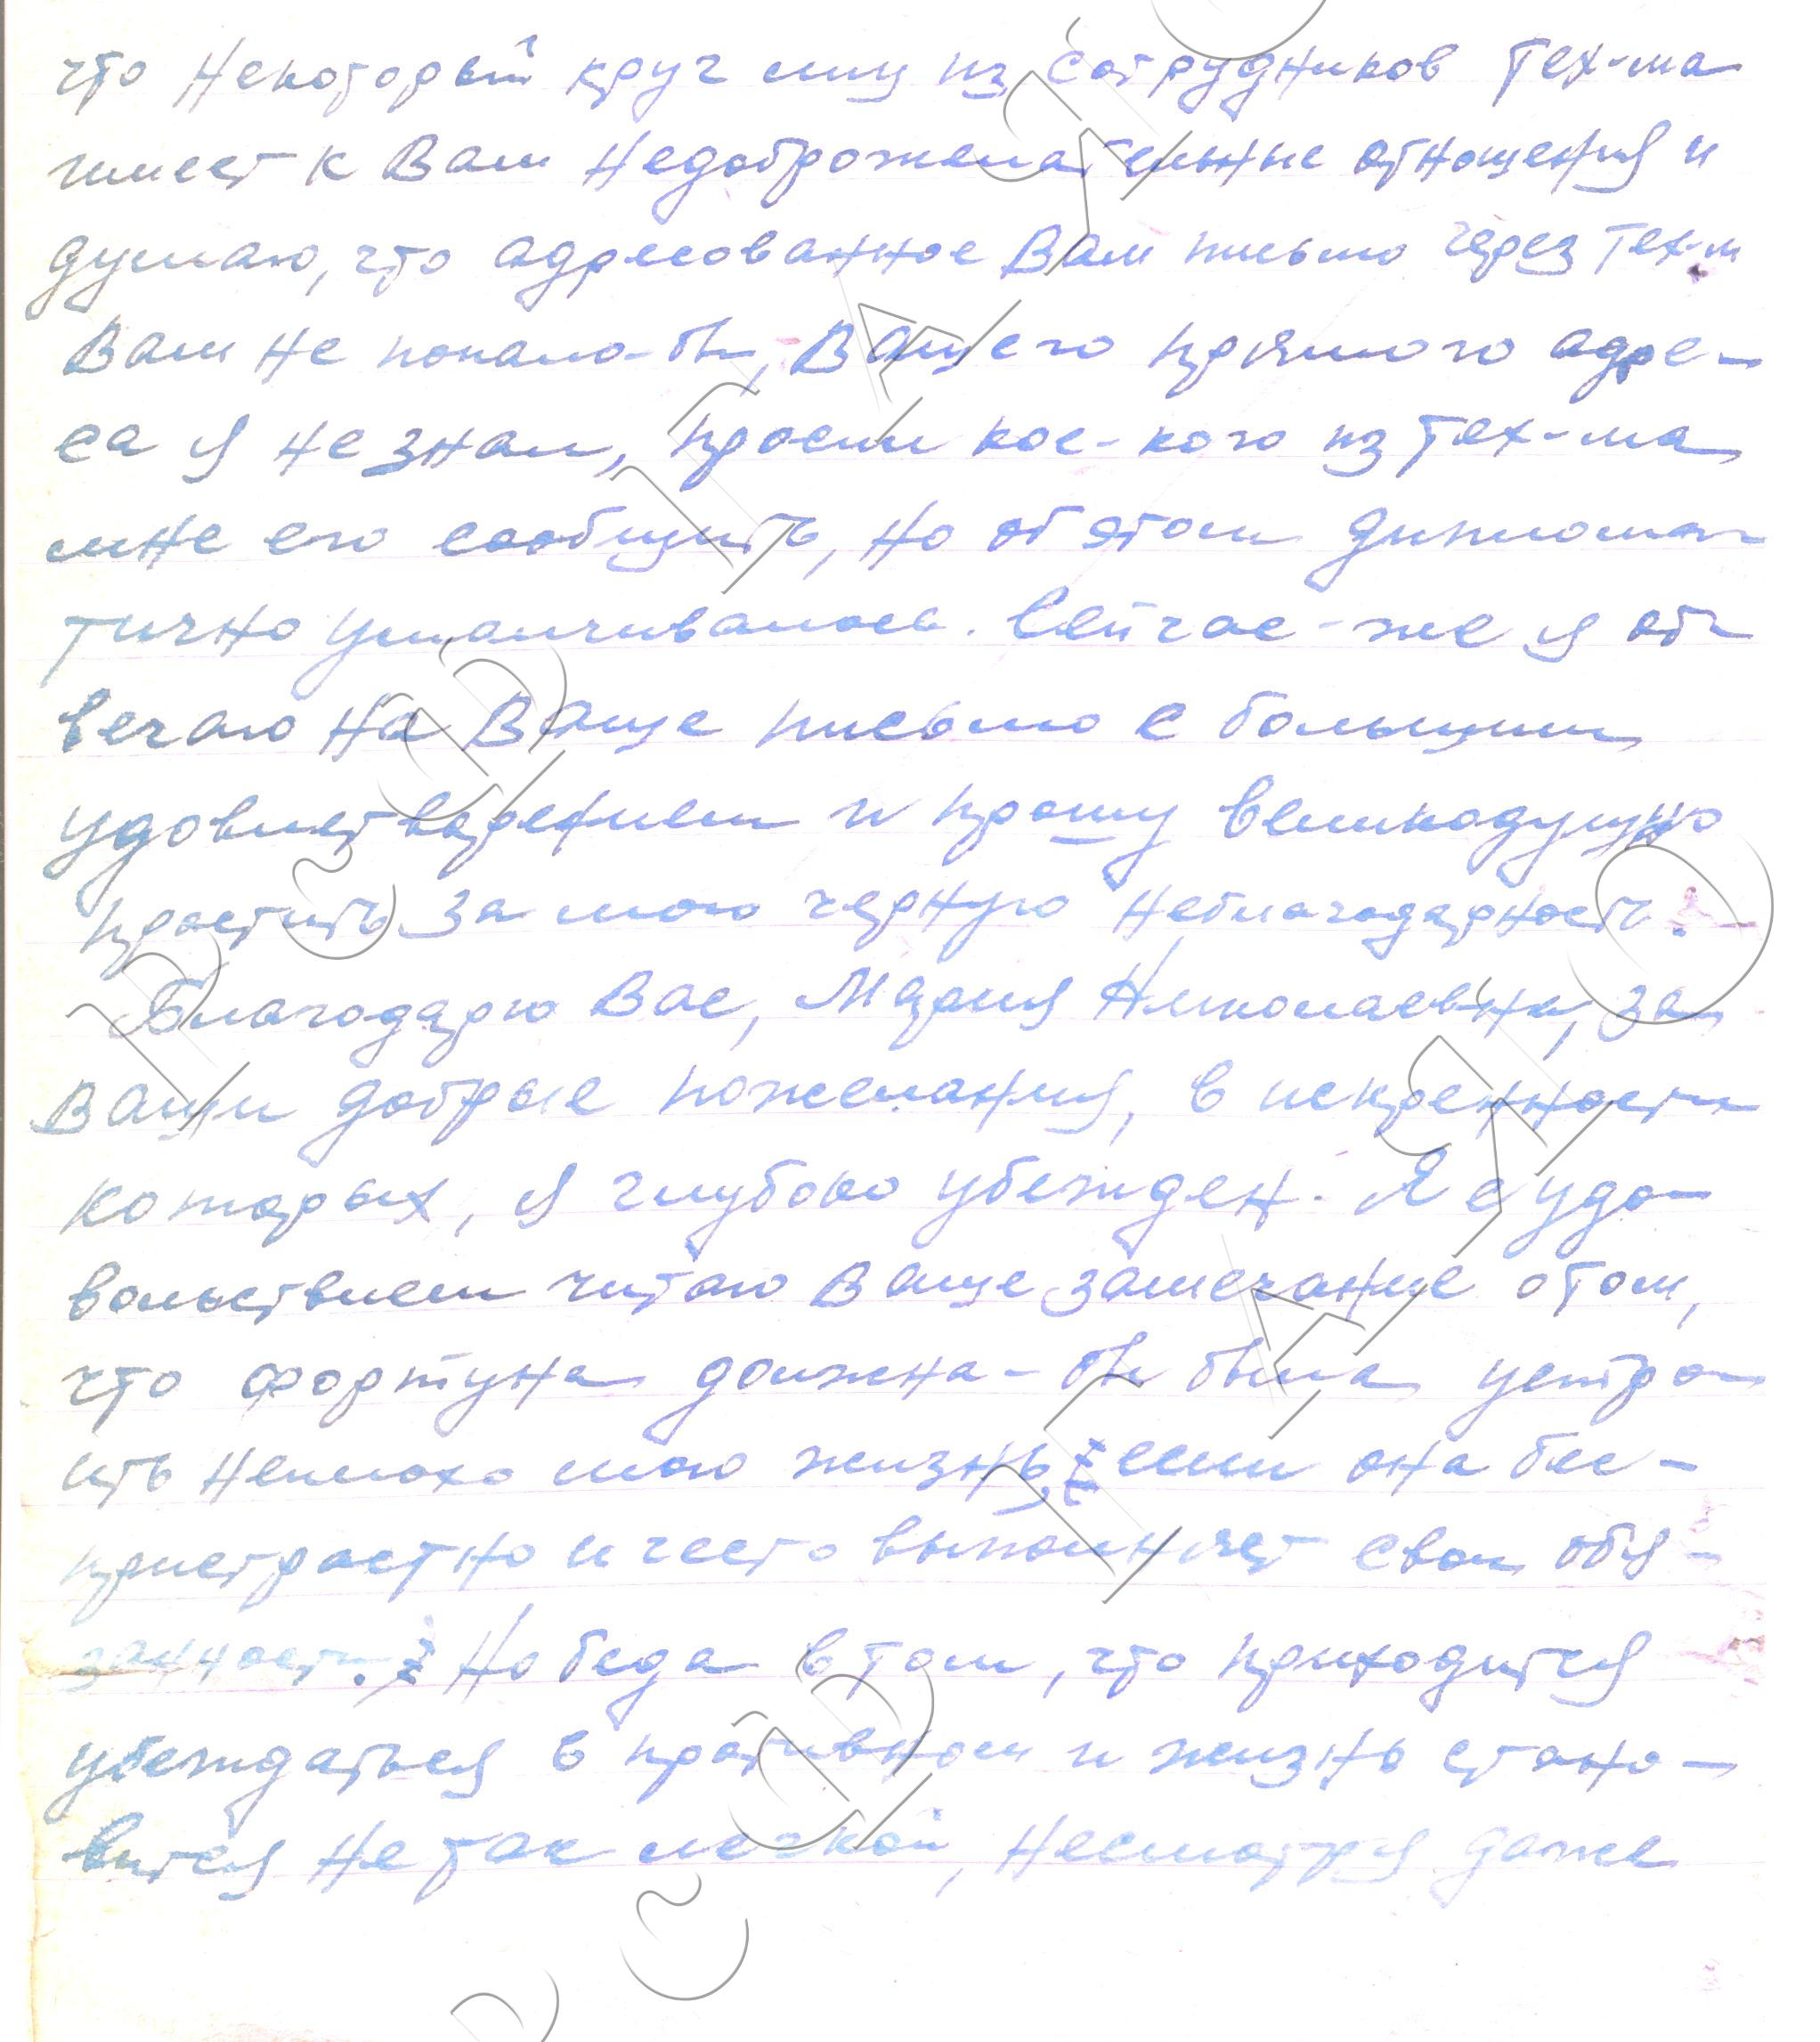 что некоторый круг лиц из сотрудников Тех-ма
имеет к Вам недоброжелательные отношения и
думаю, что адресованное Вам письмо через Тех-м
Вам не попало-бы, Вашего прямого адре-
са я не знал, просил кое-кого из Тех-ма
мне его сообщить, но об этом диплома-
тично умалчивалось. Сейчас-же я от-
вечаю на Ваше письмо с большим
удовлетворением и прошу великодушно
простить за мою черную неблагодарность.
Благодарю Вас, Мария Николаевна, за
Ваши добрые пожелания, в искренности
которых, я глубоко убежден. Я с удо-
вольствием читаю Ваше замечание о том,
что фортуна должна-бы была устро-
ить неплохо мою жизнь, если она бес-
пристрастно и често выполняет свои обя-
занности. Но беда в том, что приходится
убеждаться в противном и жизнь стано-
вится не так легкой, несмотря даже